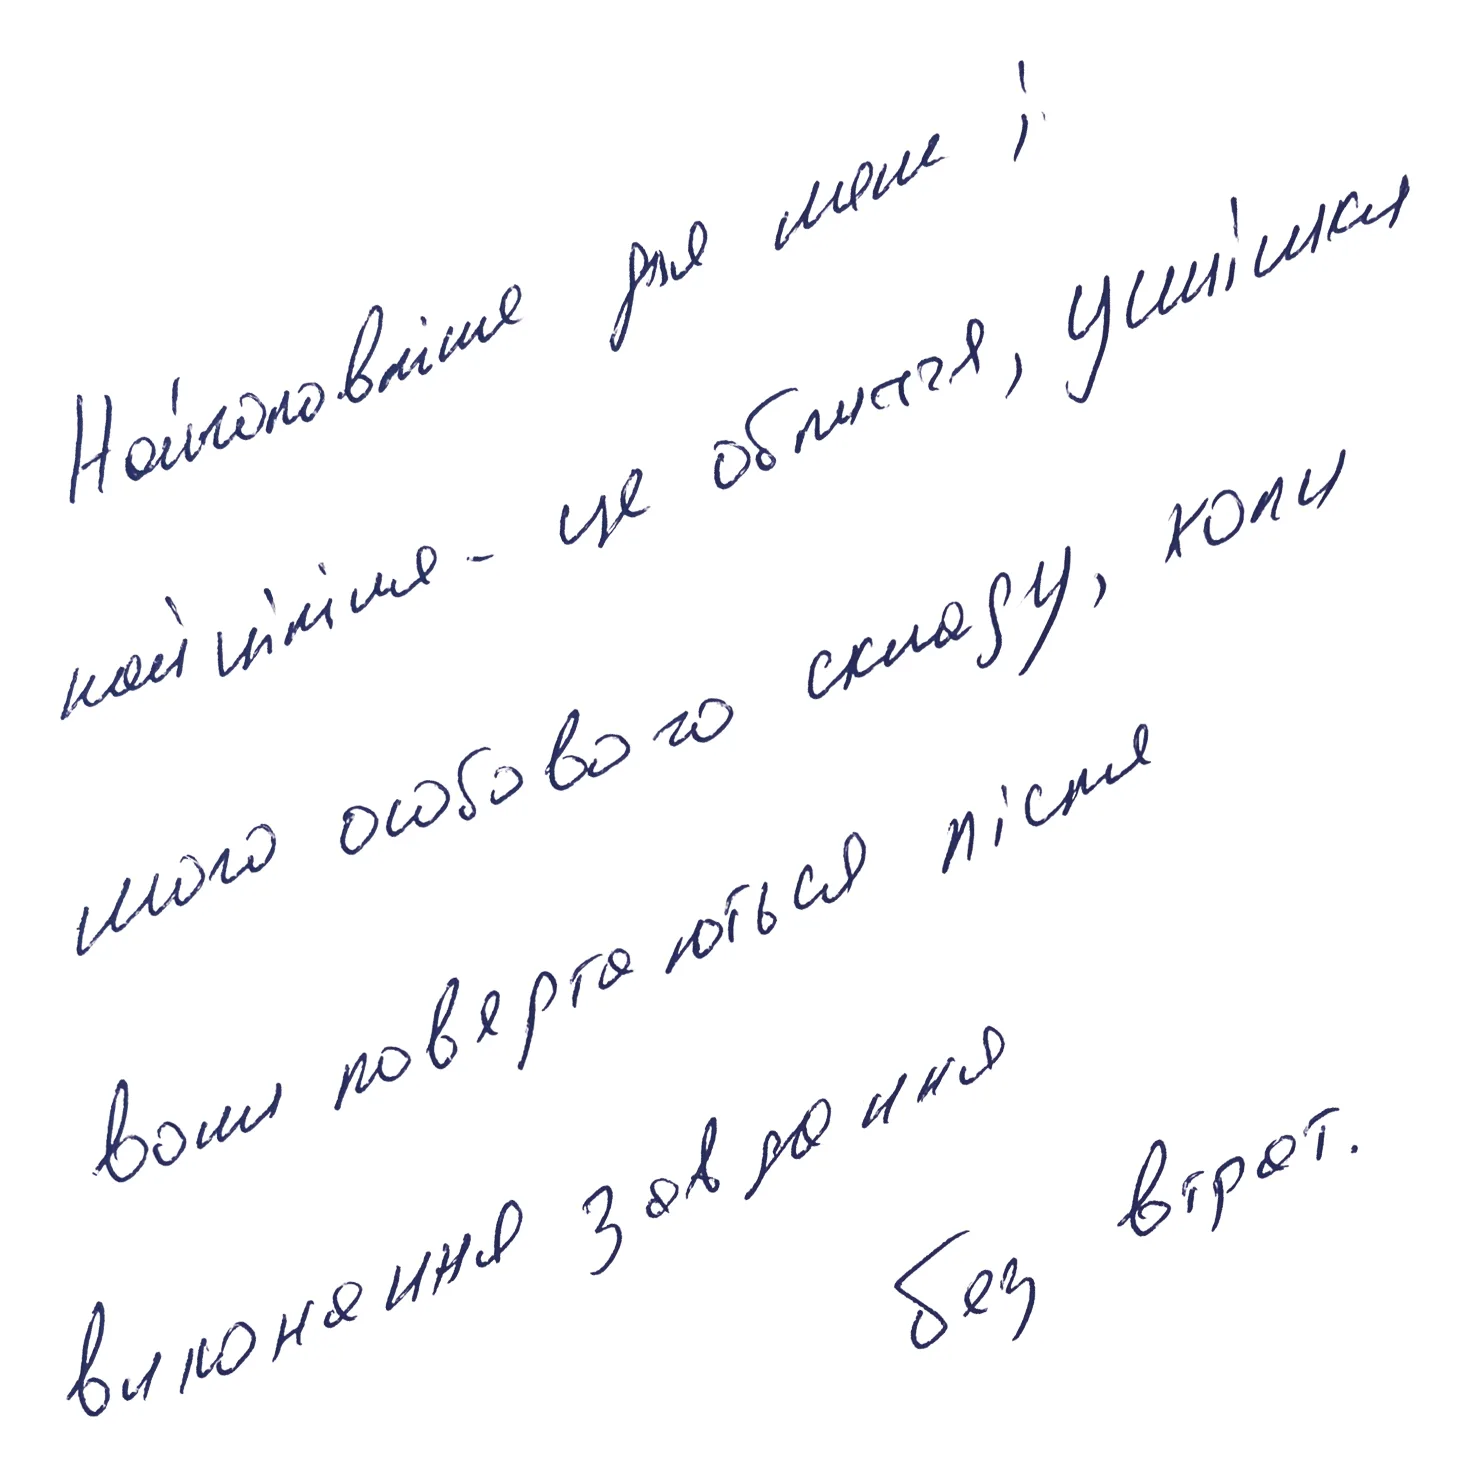 Найголовніше для мене і
найцінніше - це обличчя, усмішки
мого особового складу, коли
вони повертаються після
виконання завдання
без втрат.